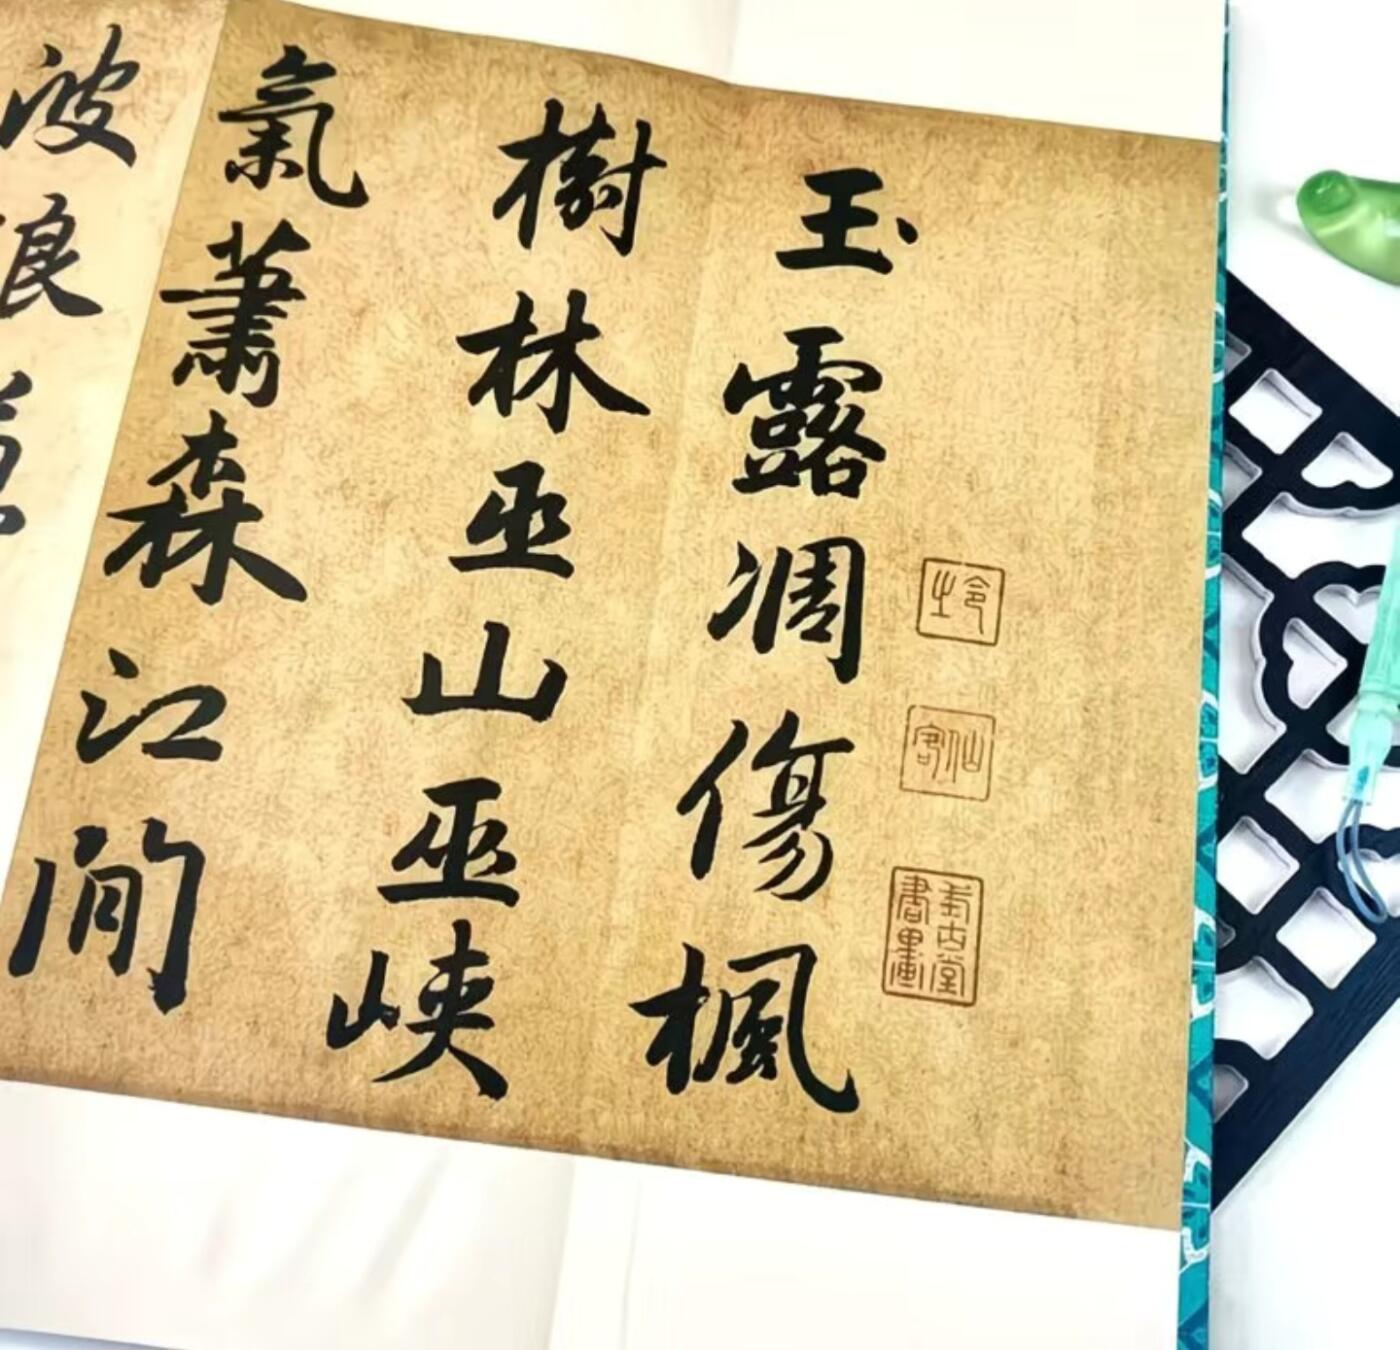 玉露凋傷楓
樹林巫山巫峽
氣蕭森江間
波浪兼
仙客